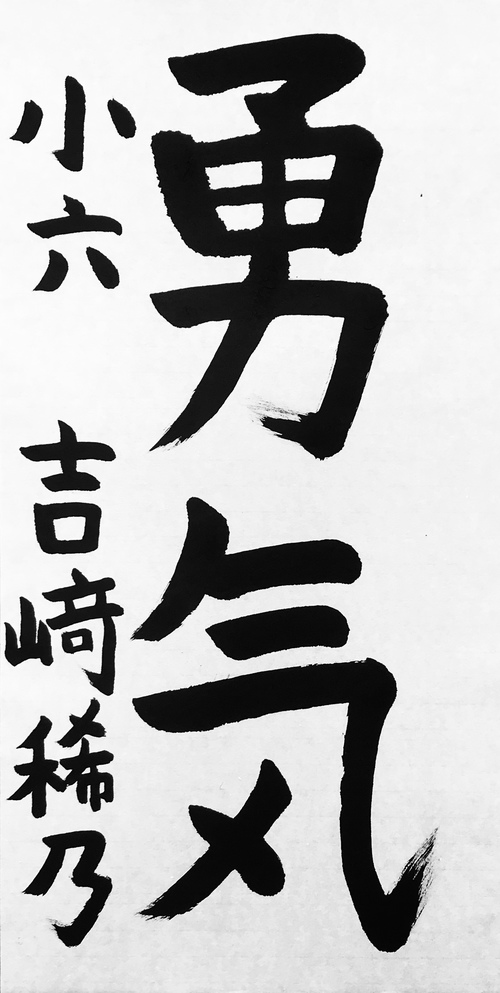 勇気
小六 吉﨑稀乃